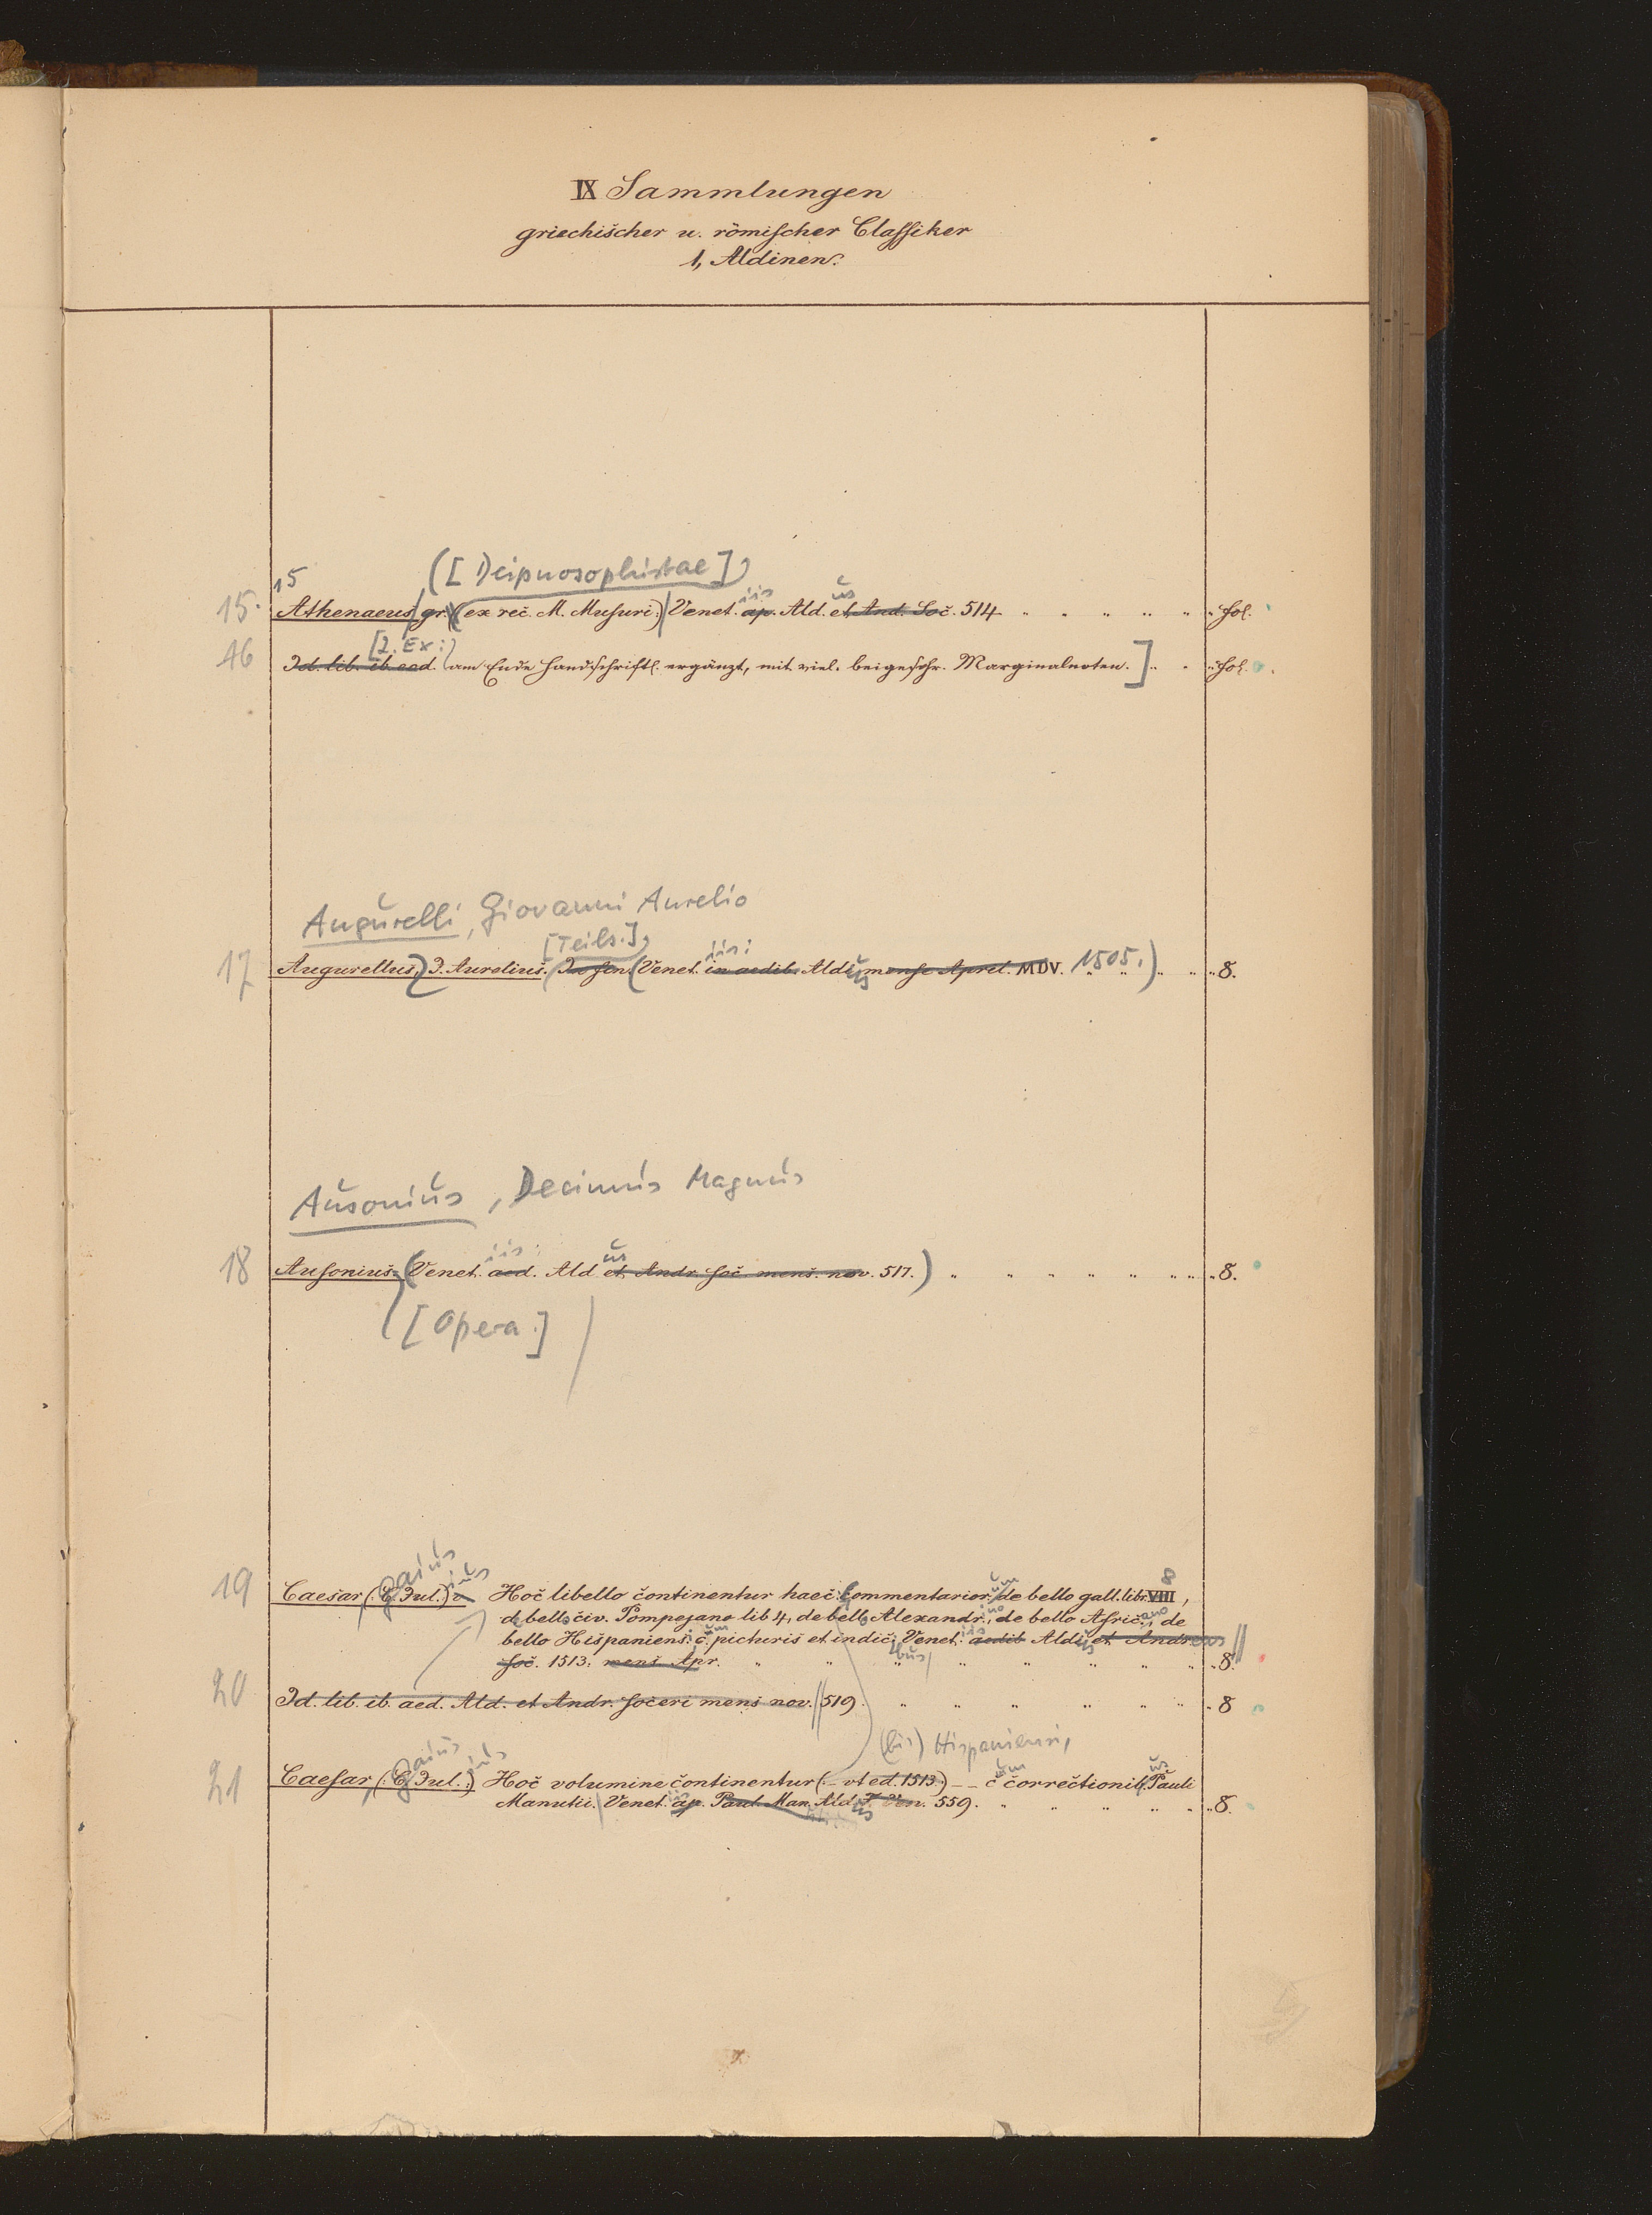 IX Sammlungen
griechischer u. römischer Classiker
1, Aldinen.
([Deipnosophistae],
15
15. Athenaeus gr. (ex rec. M. Musuri.) Venet. iis ap. Ald. us et And. Soc. 514 fol.
[2. Ex:
16 Id. lib. ib. aed. am Ende handschriftl. ergänzt, mit viel. beigeschr. Marginalnoten.] fol.
Augurelli, Giovanni Aurelio
[Teils.], iis:
17 Augurellus, J. Aurelius. Venet. in aedib. Aldi us mense Aprel. MDV. 1505.) 8.
Ausonius, Decimus Magnus
iis: us
18 Ausonius. (Venet. aed. Ald et Andr. soc. mens. nov. 517.) 8.
[Opera.]
Gaius ius um 8
19 Caesar (C. Jul.) Hoc libello continentur haec: Commentarior. de bello gall. libr. VIII,
de bello civ. Pompejano lib 4, de bello Alexandr. ino, de bello Afric. ano, de
bello Hispaniens. c. um picturis et indic. Venet. iis aedib Aldi us et Andreas
bus
soc. 1513. mens. Apr. 8.
20 Id. lib. ib. aed. Ald. et Andr. soceri mens nov. 519. 8
(bis) Hispaniensi,
Gaius ius um us
21 Caesar (C. Jul.) Hoc volumine continentur (– vt ed. 1513.) – – c correctionib. Pauli
Manutii. Venet. iis ap. Paul. Man. Ald. us F. Ven. 559. 8.